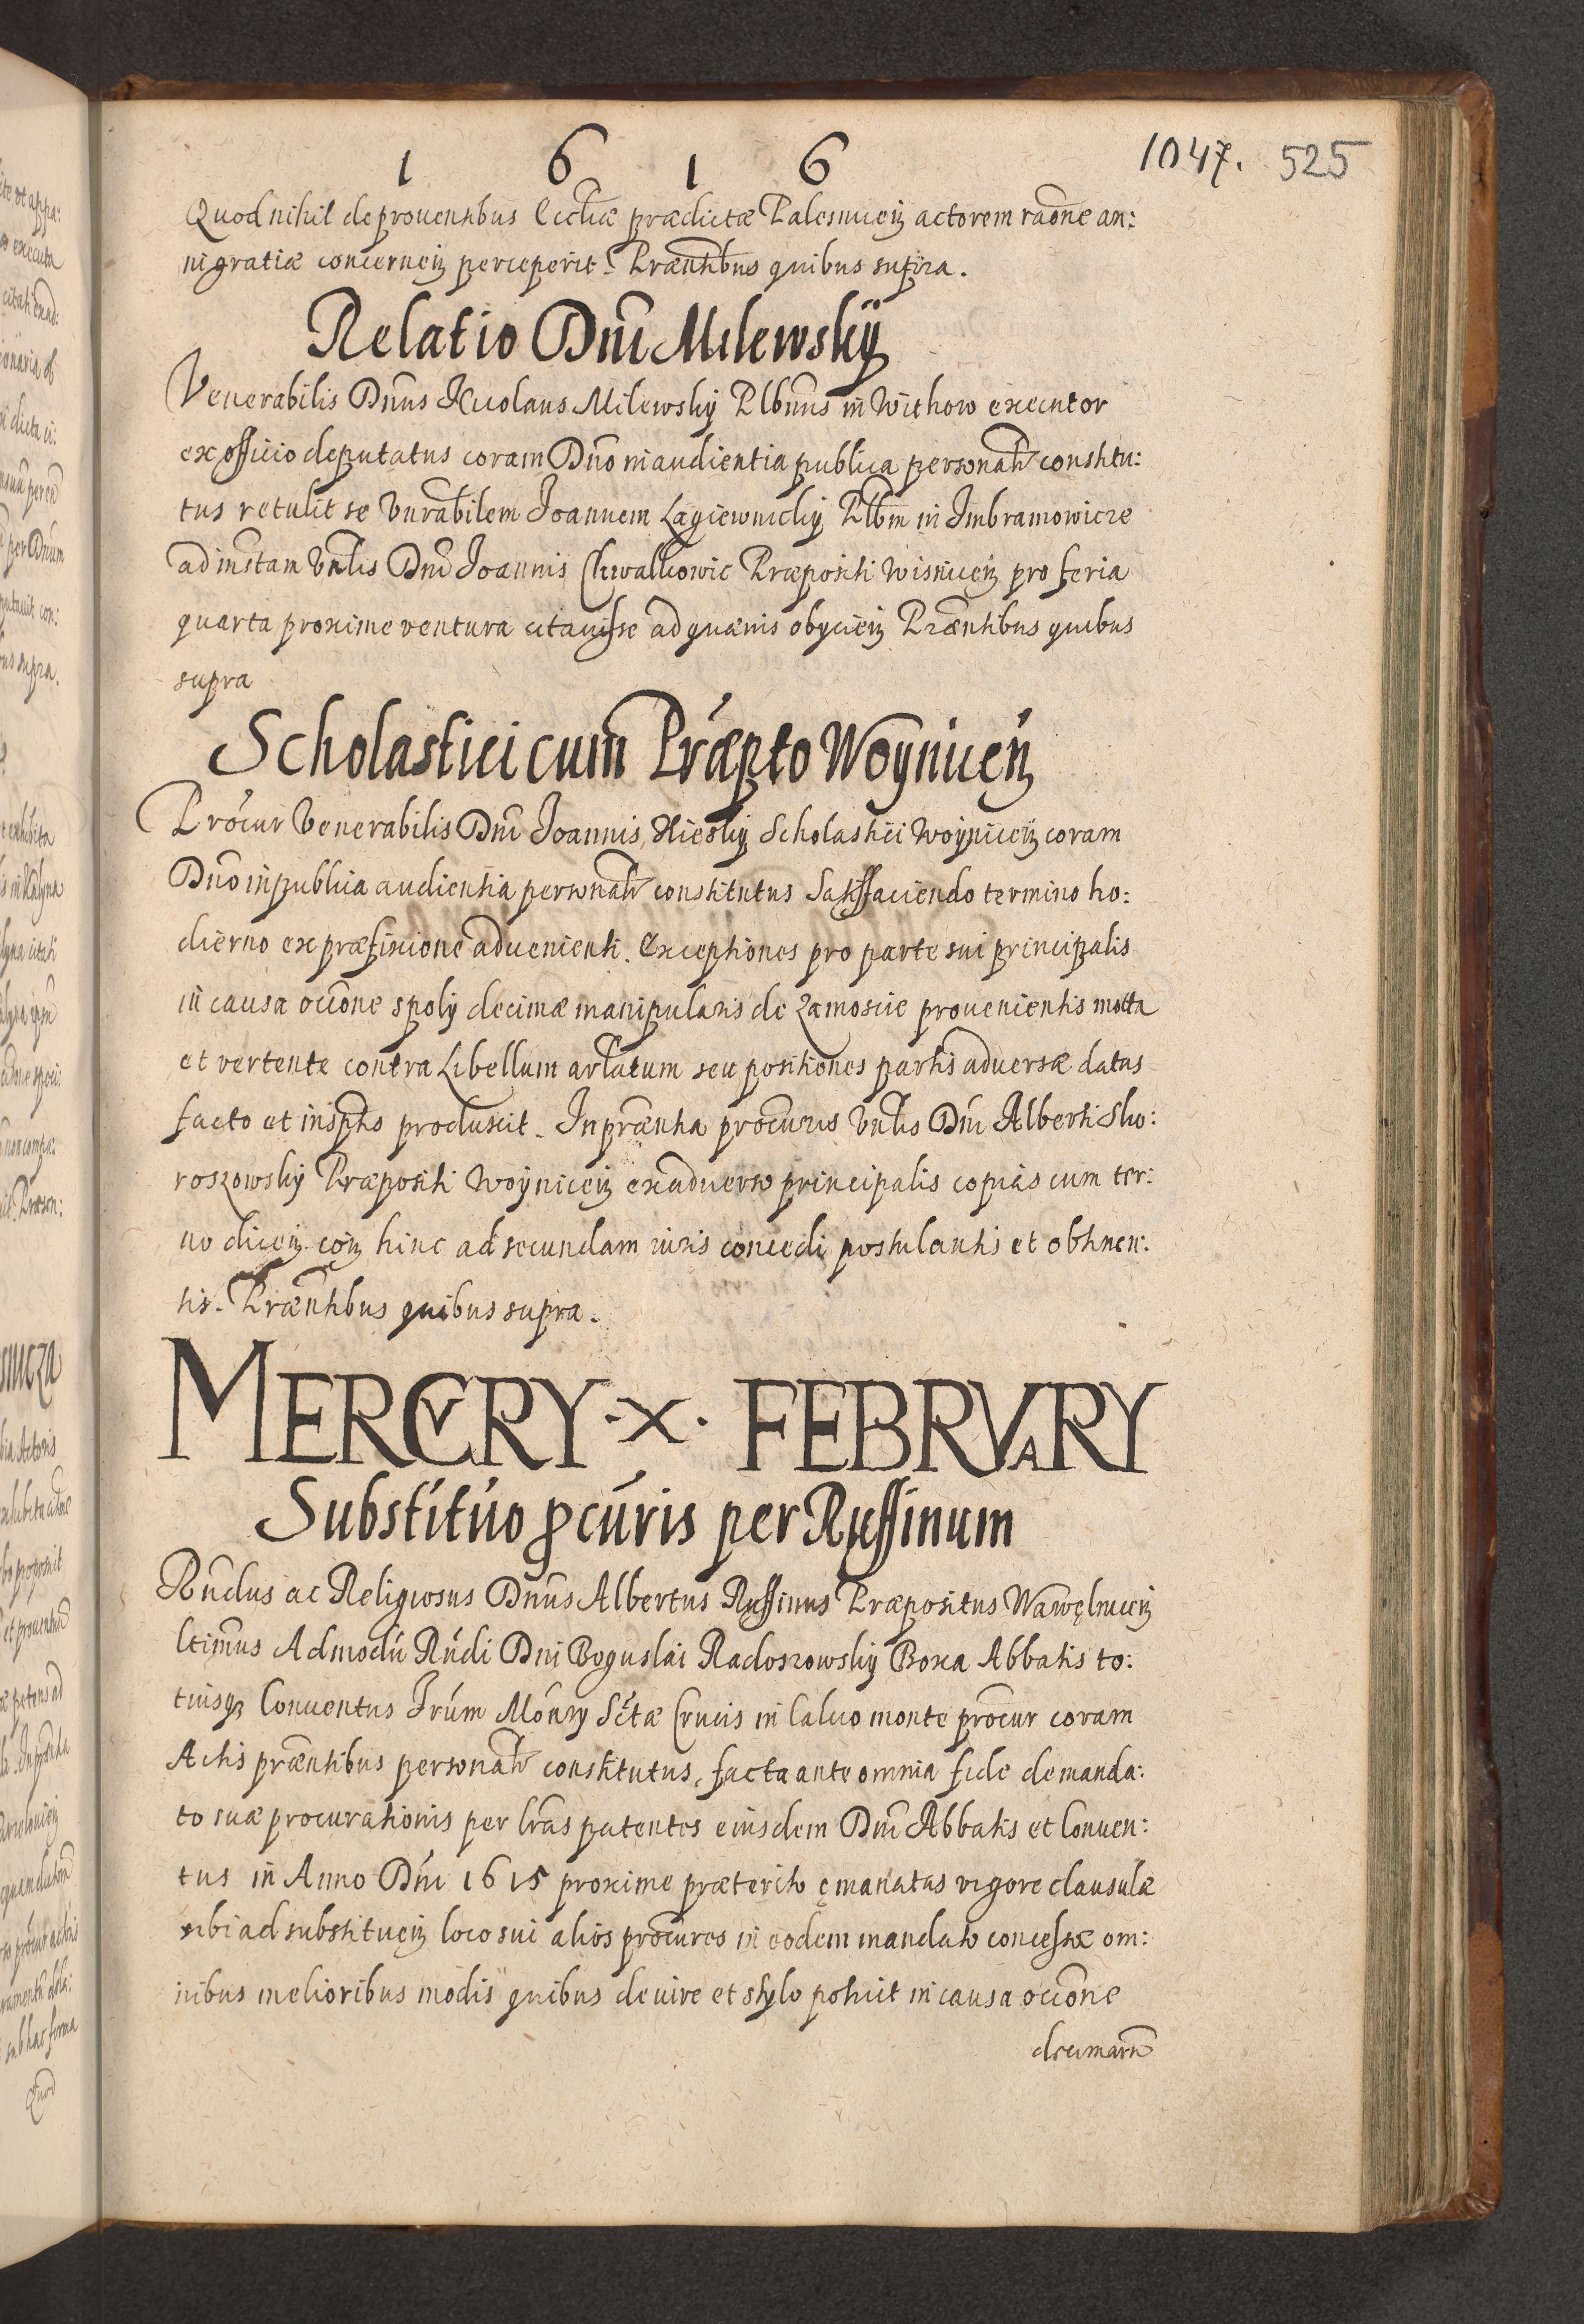 1 6 1 6
1047. 525
Quod nihil de prouentibus Eccliæ prædictæ Palesnicen actorem raōne an:
ni gratiæ concernen perceperit. Præntibus quibus supra.
Relatio Dnī Milewskÿ
Venerabilis Dnūs Nicolaus Milewsky Plbnūs in Withow executor
ex officio deputatus coram Dnō in audientia publica personalr constitu:
tus retulit se Vnrabilem Joannem Łagiewnicky Plbm in Imbramowicze
ad instam Vnlis Dnī Joannis Chwalkowic Præpositi Wisnicen pro feria
quarta proxime ventura citauisse ad quænis obÿcien Præntibus quibus
supra
Scholastici cum Præpto Woynicen
Procur Venerabilis Dnī Joannis Scholastici Woynicen coram
Dnō in publica audientia personalr constitutus Satisfaciendo termino ho:
dierno ex præfixione aduenienti. Exceptiones pro parte sui principalis
in causa occōne spoly decimæ manipularis de Zamoscie prouenientis motta
et vertente contra Libellum arlatum seu positiones partis aduersæ datas
facto et in scptis produxit. In præntia procuris Vnlis Dnī Alberti Sko:
roszowsky Præpositi Woynicen ex aduerso principalis copias cum ter:
no dicen con hinc ad secundam iuris concedi postulantis et obtinen:
tis. Præntibus quibus supra.
MERCVRY · X · FEBRVARY
Substitúo pcúris per Ruffinum
Rndus ac Religiosus Dnūs Albertus Ruffinus Præpositus Wawęlnicen
ltimus Admodū Rńdi Dni Boguslai Radoszowsky Boxa Abbatis to:
tiusqȝ Conuentus Frūm Mōnry Sctæ Crucis in Caluo monte procur coram
Actis præntibus personalr constitutus, facta ante omnia fide de manda:
to suæ procurationis per lras patentes eiusdem Dnī Abbatis et Conuen:
tus in Anno Dnī 1615 proxime præterito ęmanatas vigore clausulæ
sibi ad substituen loco sui alios procures in eodem mandato concessæ om:
nibus melioribus modis quibus de iure et stylo potuit in causa occōne
decimarū